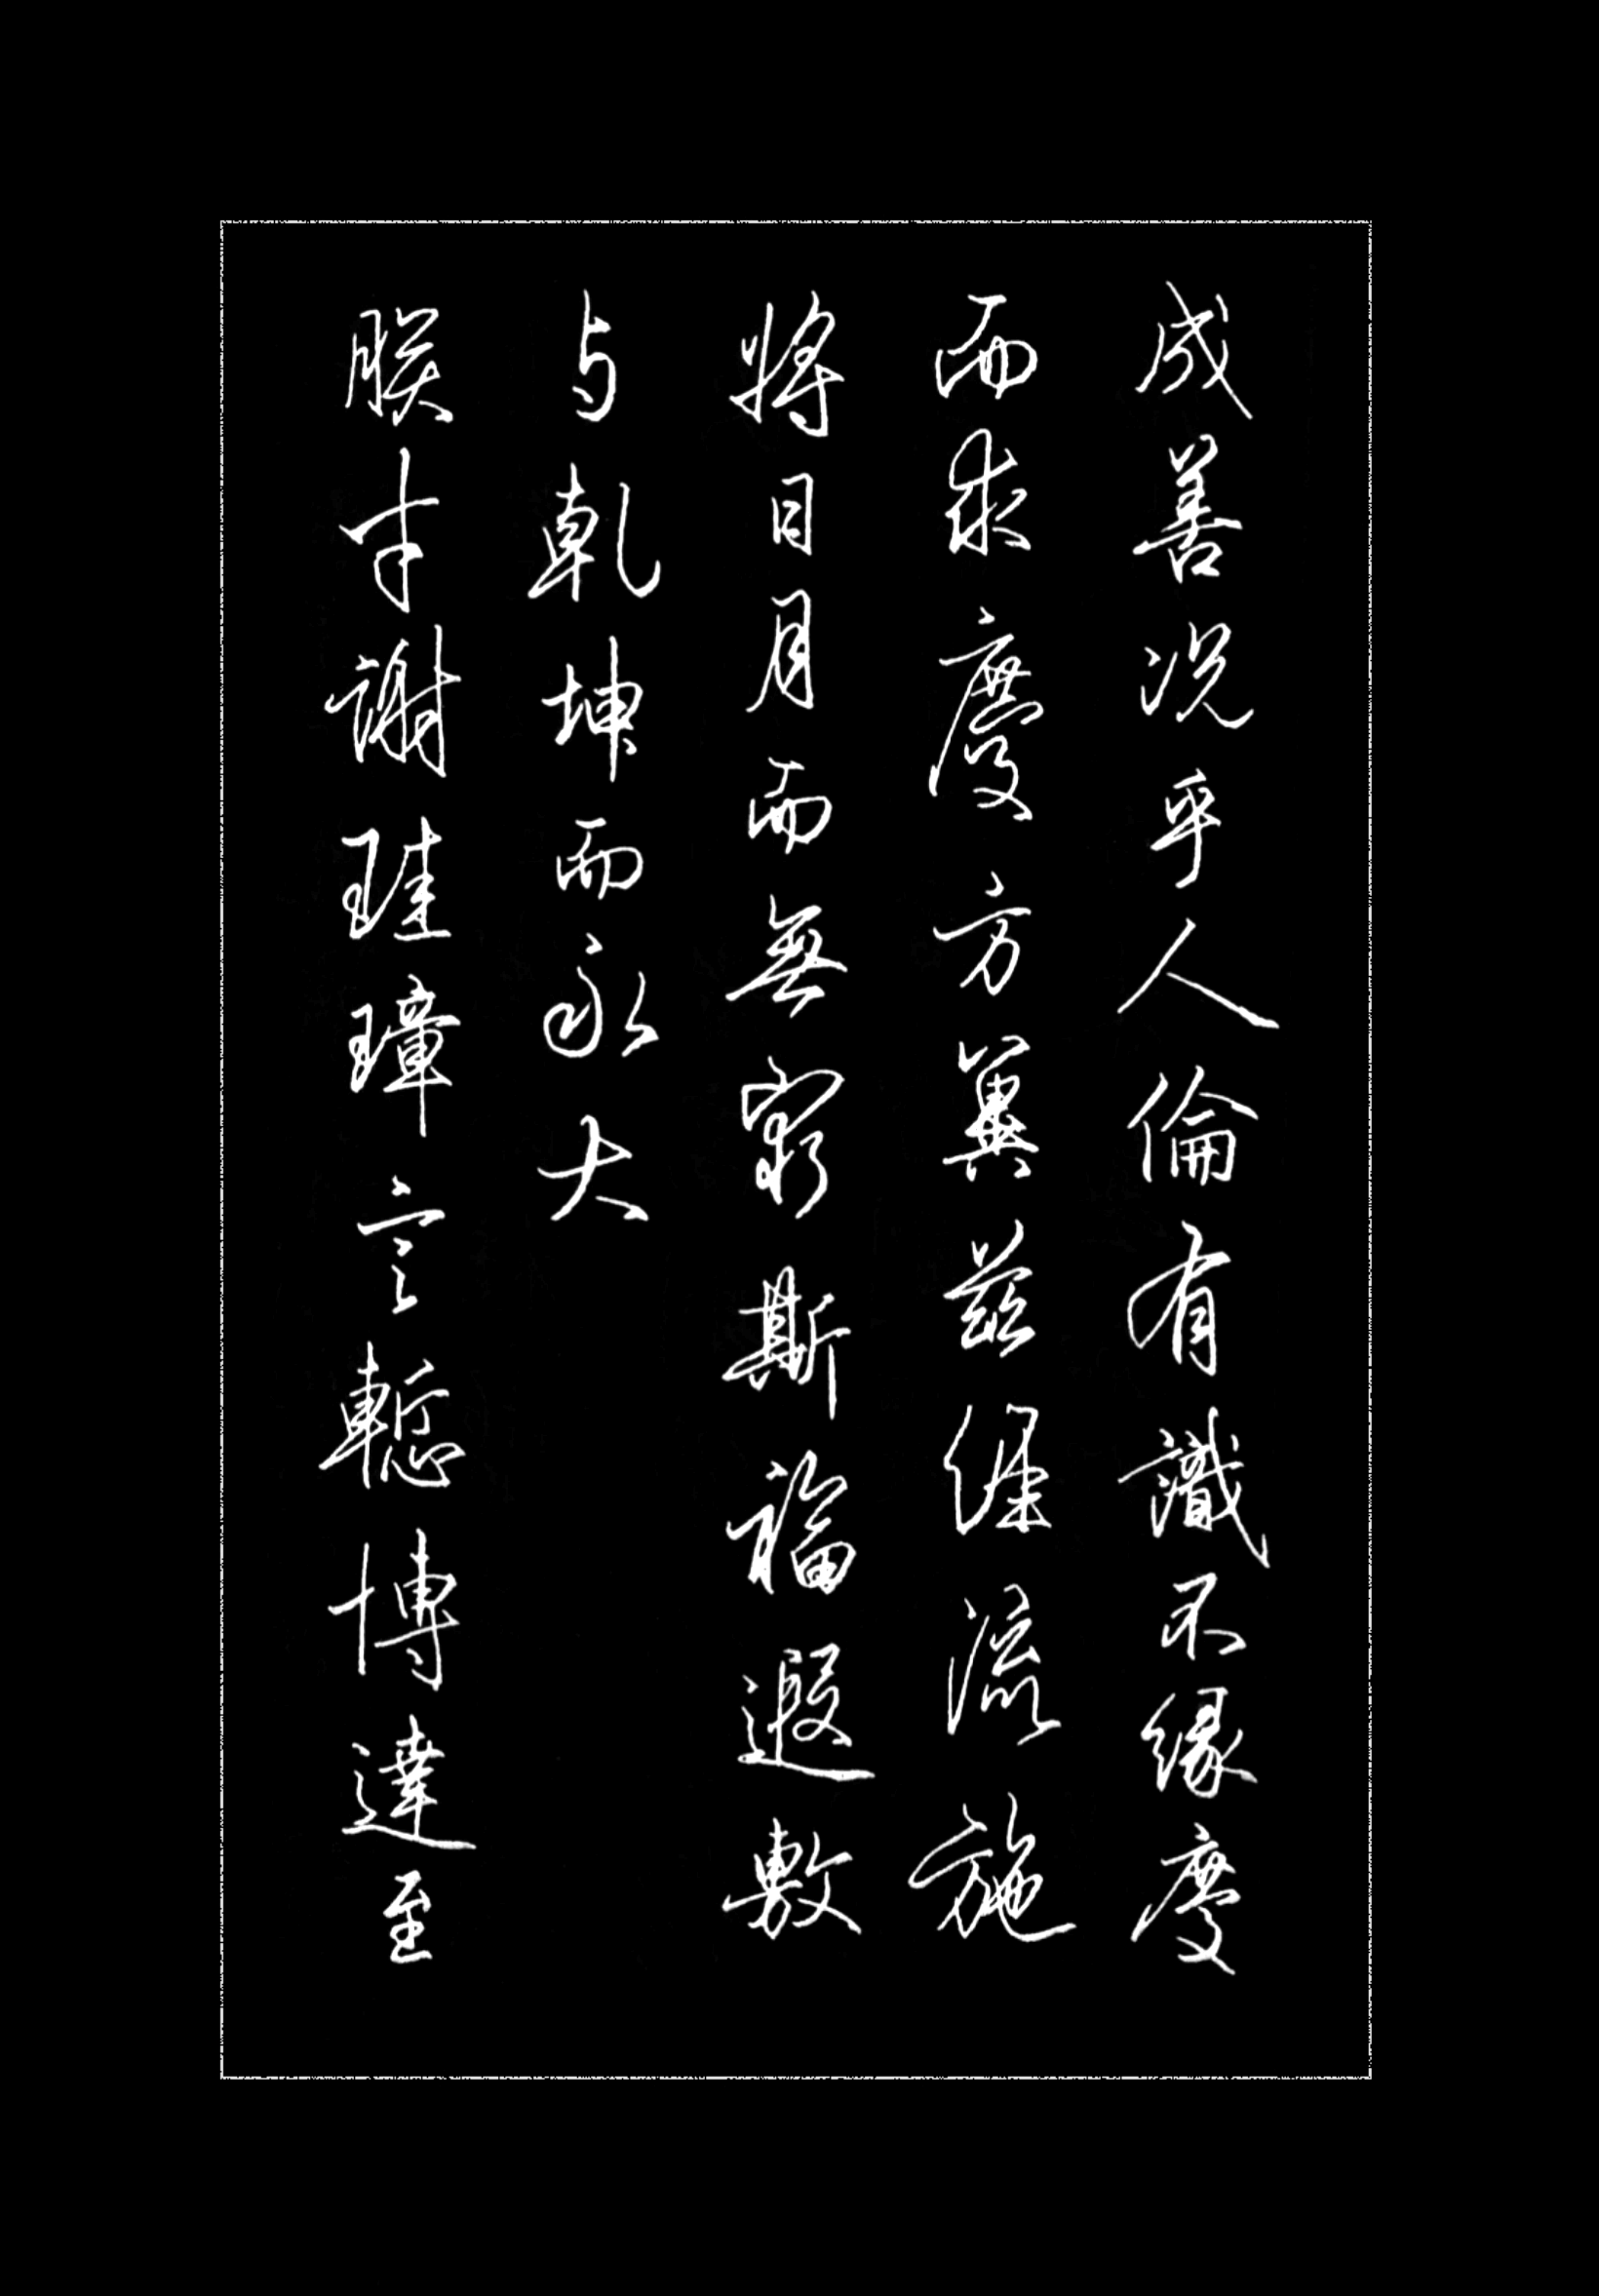 成善況乎人倫有識不緣慶
而求慶方冀茲經流施
將日月而無窮斯福遐敷
与乾坤而永大
朕才謝珪璋言慙博達至